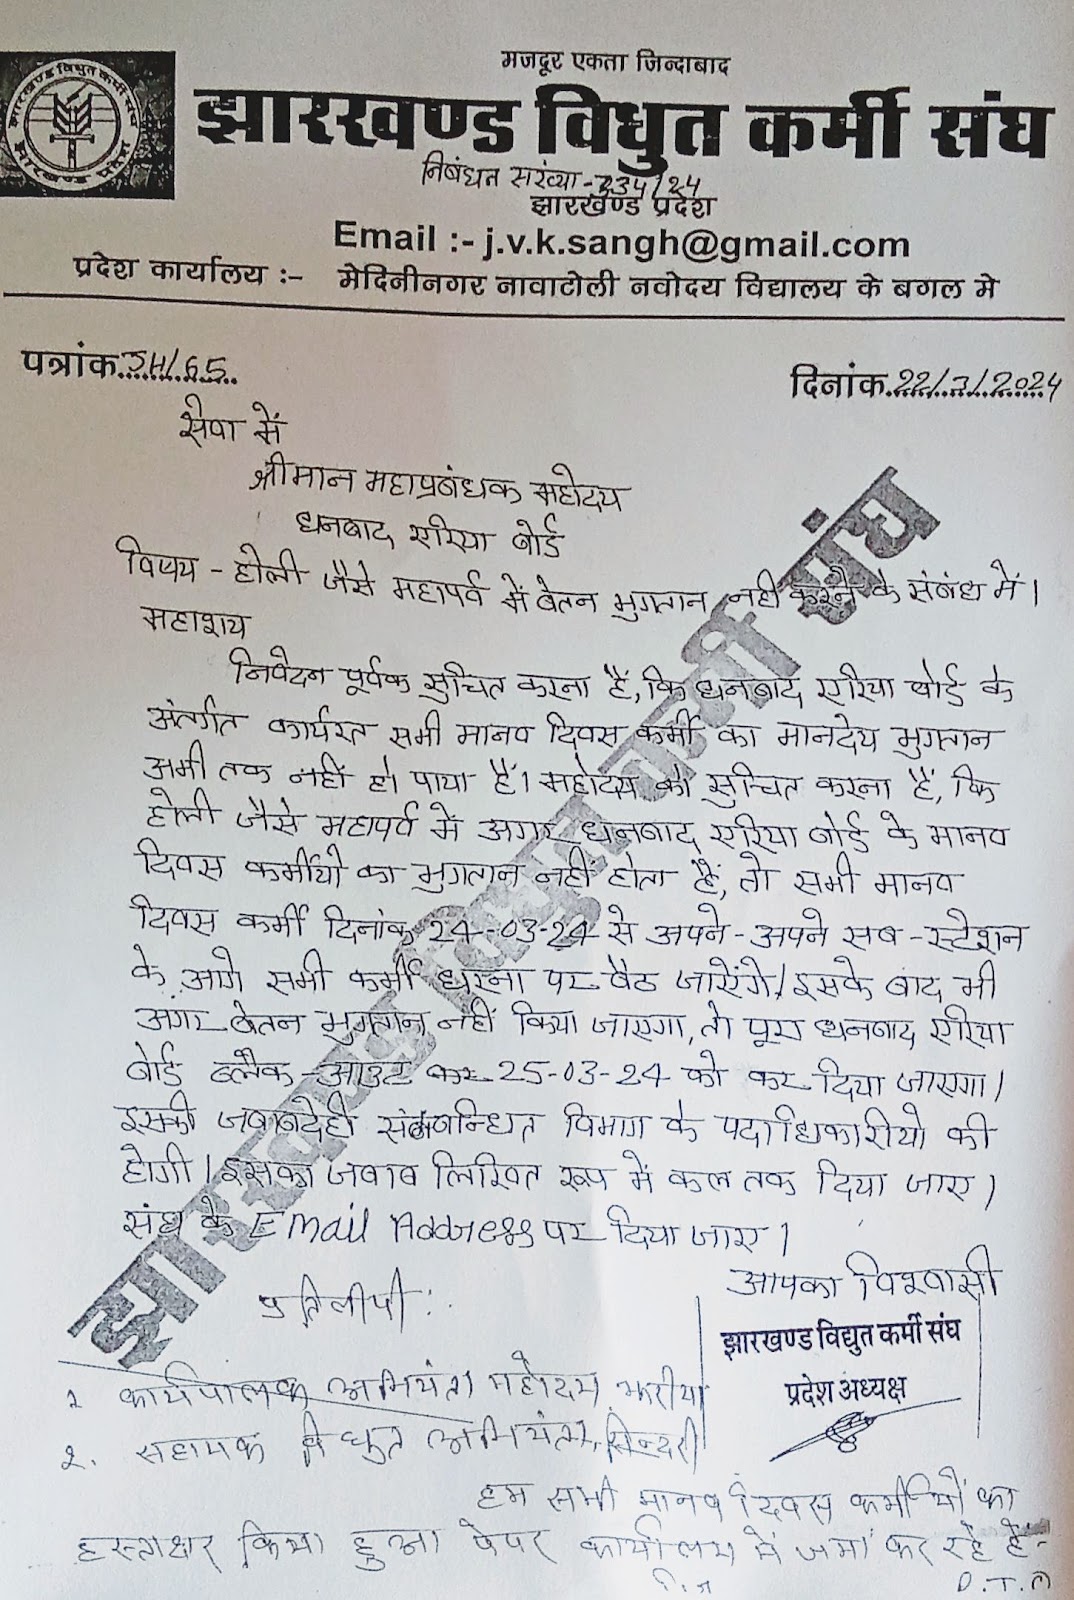 मजदूर एकता जिन्दाबाद
झारखण्ड विधुत कर्मी संघ
निबंधन संख्या-234/24
झारखण्ड प्रदेश
Email :- j.v.k.sangh@gmail.com
प्रदेश कार्यालय :- मेदिनीनगर नावाटोली नवोदय विद्यालय के बगल मे
पत्रांक JH/65
दिनांक 22/3/2024
सेवा में
श्रीमान महाप्रबंधक महोदय
धनबाद एरिया बोर्ड
विषय - होली जैसे महापर्व में वेतन भुगतान नहीं करने के संबंध में।
महाशय
निवेदन पूर्वक सुचित करना है, कि धनबाद एरिया बोर्ड के
अंतर्गत कार्यरत सभी मानव दिवस कर्मी का मानदेय भुगतान
अभी तक नहीं हो पाया हैं। महोदय को सुचित करना हैं, कि
होली जैसे महापर्व में अगर धनबाद एरिया बोर्ड के मानव
दिवस कर्मीयो का भुगतान नहीं होता है, तो सभी मानव
दिवस कर्मी दिनांक 24-03-24 से अपने-अपने सब-स्टेशन
के आगे सभी कर्मी धरना पर बैठ जाऐंगे। इसके बाद भी
अगर वेतन भुगतान नहीं किया जाएगा, तो पूरा धनबाद एरिया
बोर्ड ब्लैक-आउट कर 25-03-24 को कर दिया जाएगा।
इसकी जबाबदेही संबन्धित विभाग के पदाधिकारीयो की
होगी। इसका जवाब लिखित रूप में कल तक दिया जाए।
संघ के Email Address पर दिया जाए।
आपका विश्वासी
प्रतिलीपी:
झारखण्ड विद्युत कर्मी संघ
प्रदेश अध्यक्ष
1 कार्यपालक अभियंता महोदय झरीया
2. सहायक विधुत अभियंता, सिन्दरी
हम सभी मानव दिवस कर्मीयों का
हस्ताक्षर किया हुआ पेपर कार्यालय में जमा कर रहे हैं-
झारखण्ड विधुत कर्मी संघ